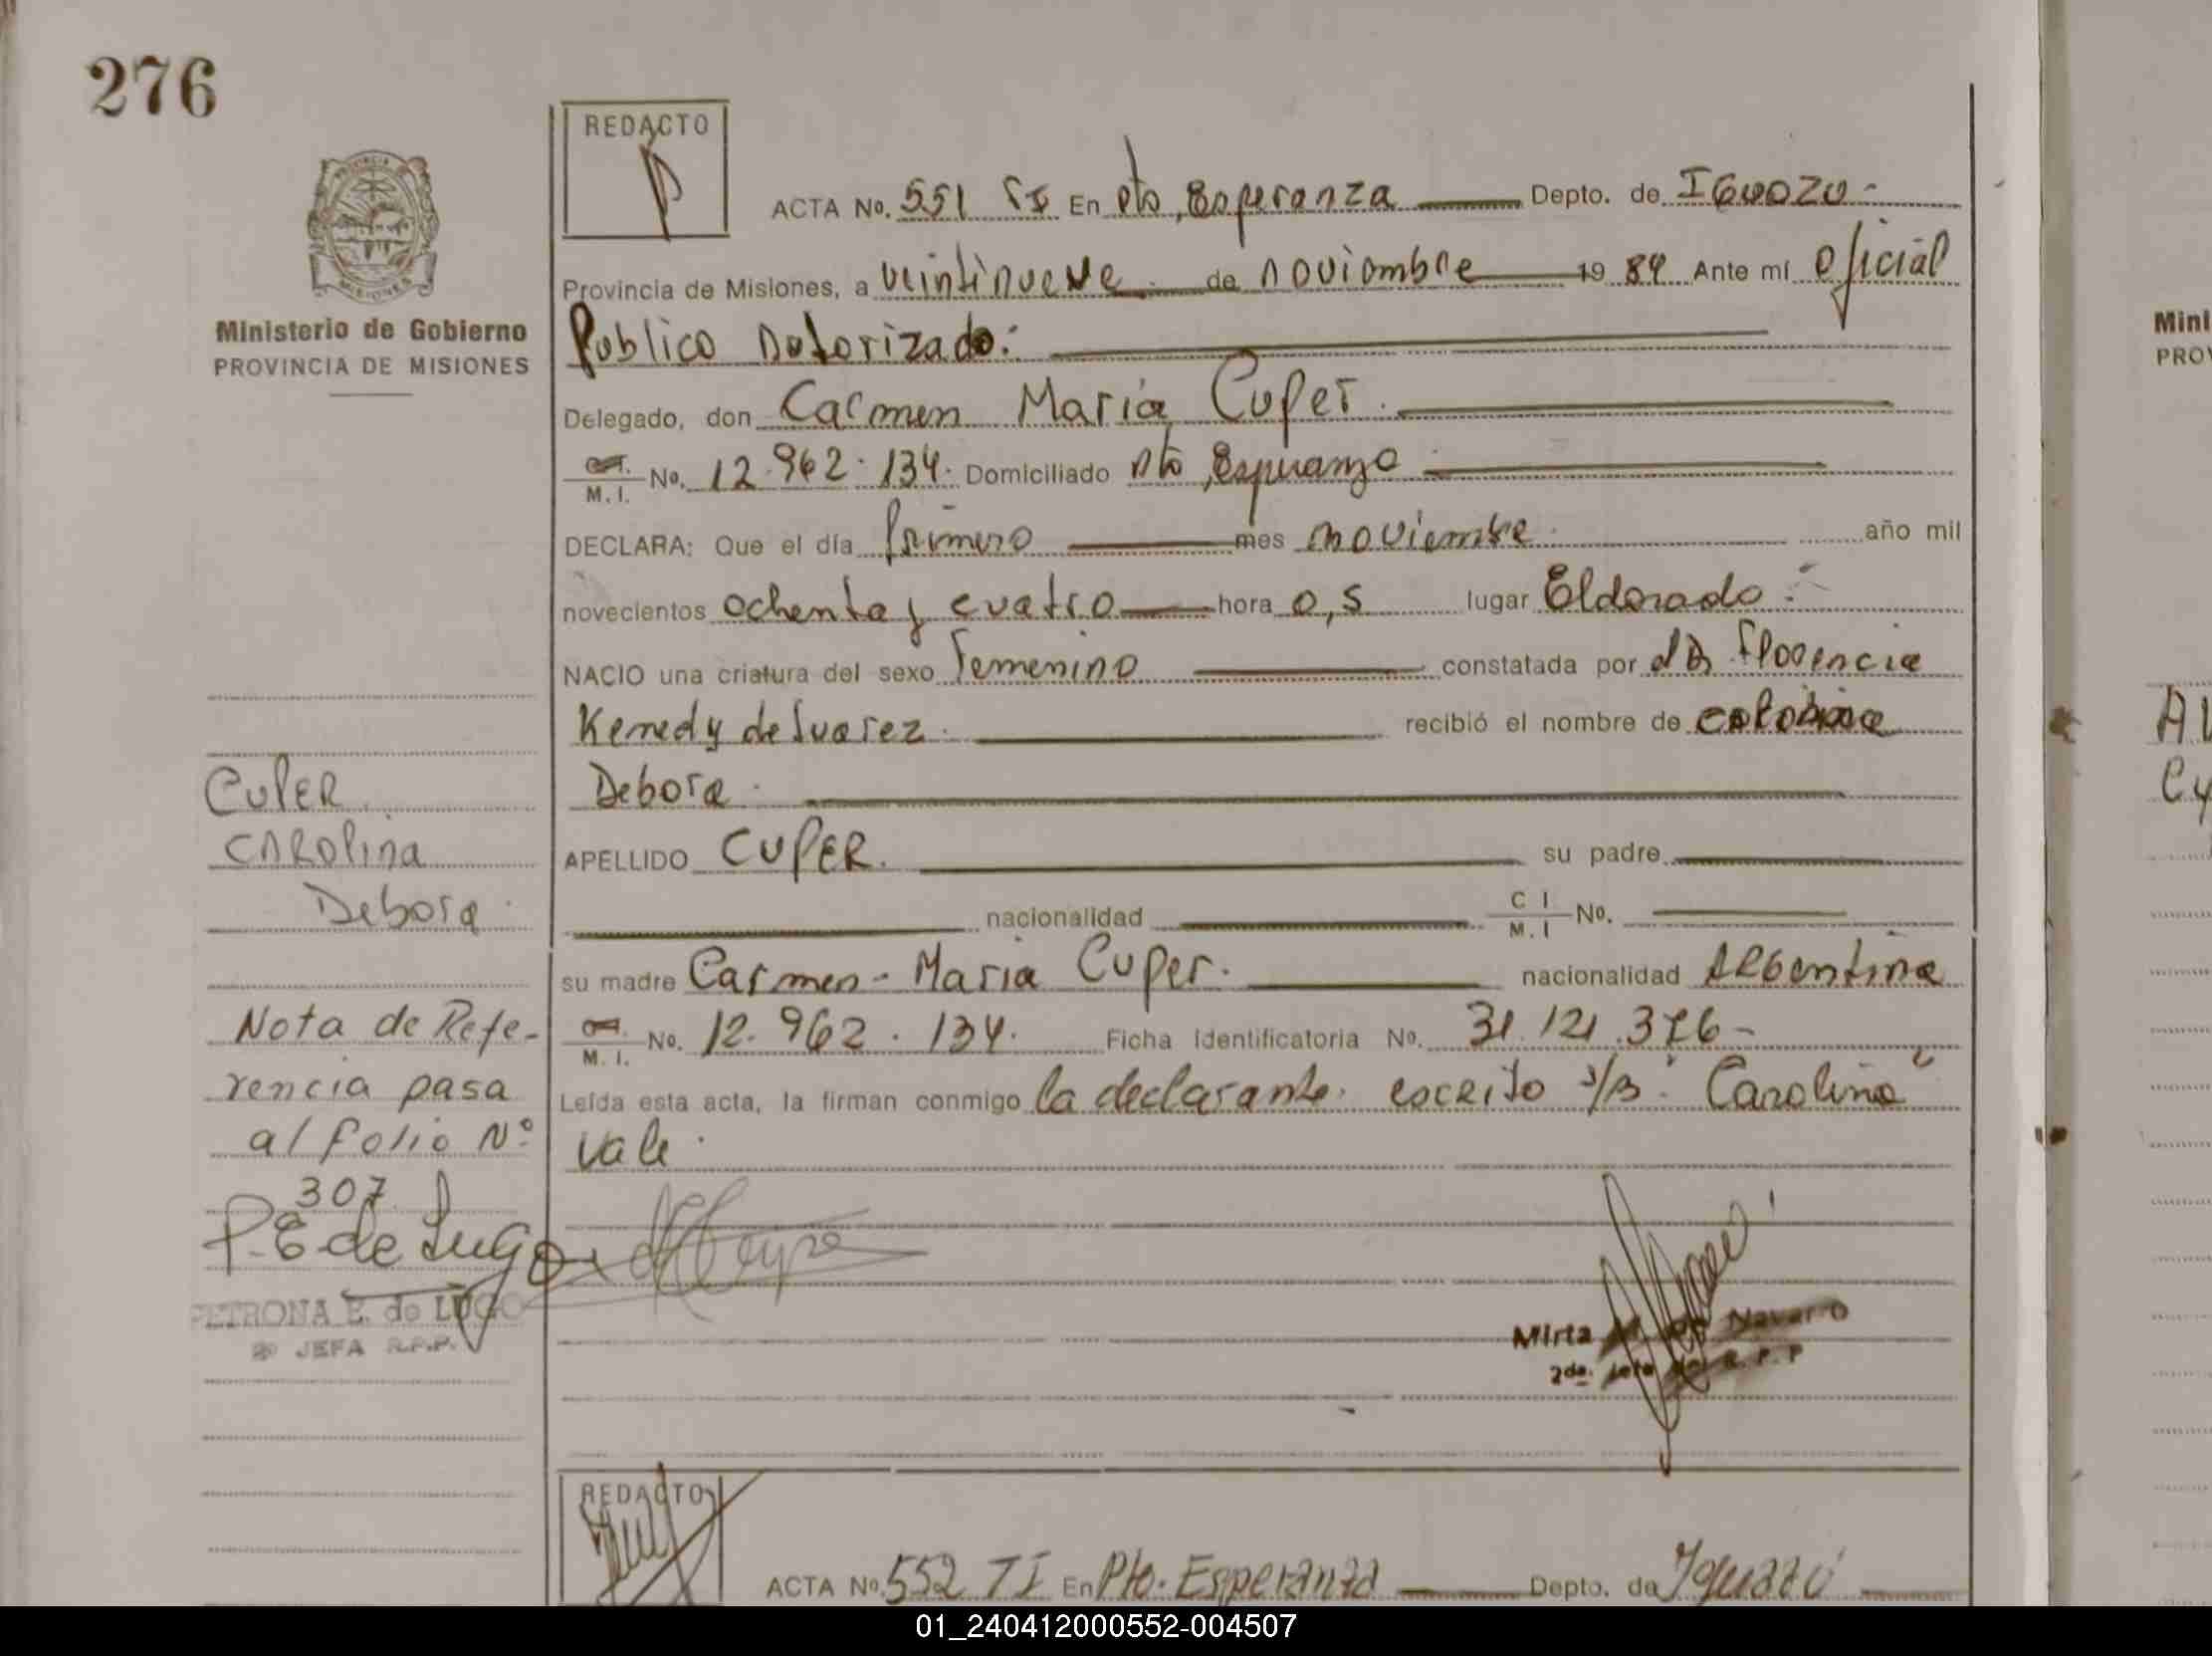 276
REDACTO
ACTA No. 551 TI En Pto, Esperanza Depto. de IGUAZU -
Ministerio de Gobierno
PROVINCIA DE MISIONES
Provincia de Misiones, a veintinueve de noviembre 19 84 Ante mí Oficial
Publico Autorizado:
Delegado, don Carmen Maria Cuper
M. I. No. 12.962.134. Domiciliado Pto, Esperanza
DECLARA: Que el día primero mes noviembre año mil
novecientos ochenta y cuatro hora 0,5 lugar Eldorado
NACIO una criatura del sexo Femenino constatada por Florencia
Kenedy de Suarez recibió el nombre de
Debora
APELLIDO CUPER. su padre
nacionalidad C I M. I No.
su madre Carmen - Maria Cuper. nacionalidad ARGentina
M. I. No. 12.962.134. Ficha Identificatoria No. 31.121.376 -
Leída esta acta, la firman conmigo la declarante. escrito s/B "Carolina"
Vale.
CUPER
CAROlina
Debora
Nota de Refe-
rencia pasa
al folio N°
307
P. E de Lugo
PETRONA E. de LUGO
JEFA R.P.P.
Mirta Navarro
2da. Jefa R. P. P
REDACTO
ACTA No. 552 TI En Pto. Esperanza Depto. de Iguazú
Mini
PRO
01_240412000552-004507